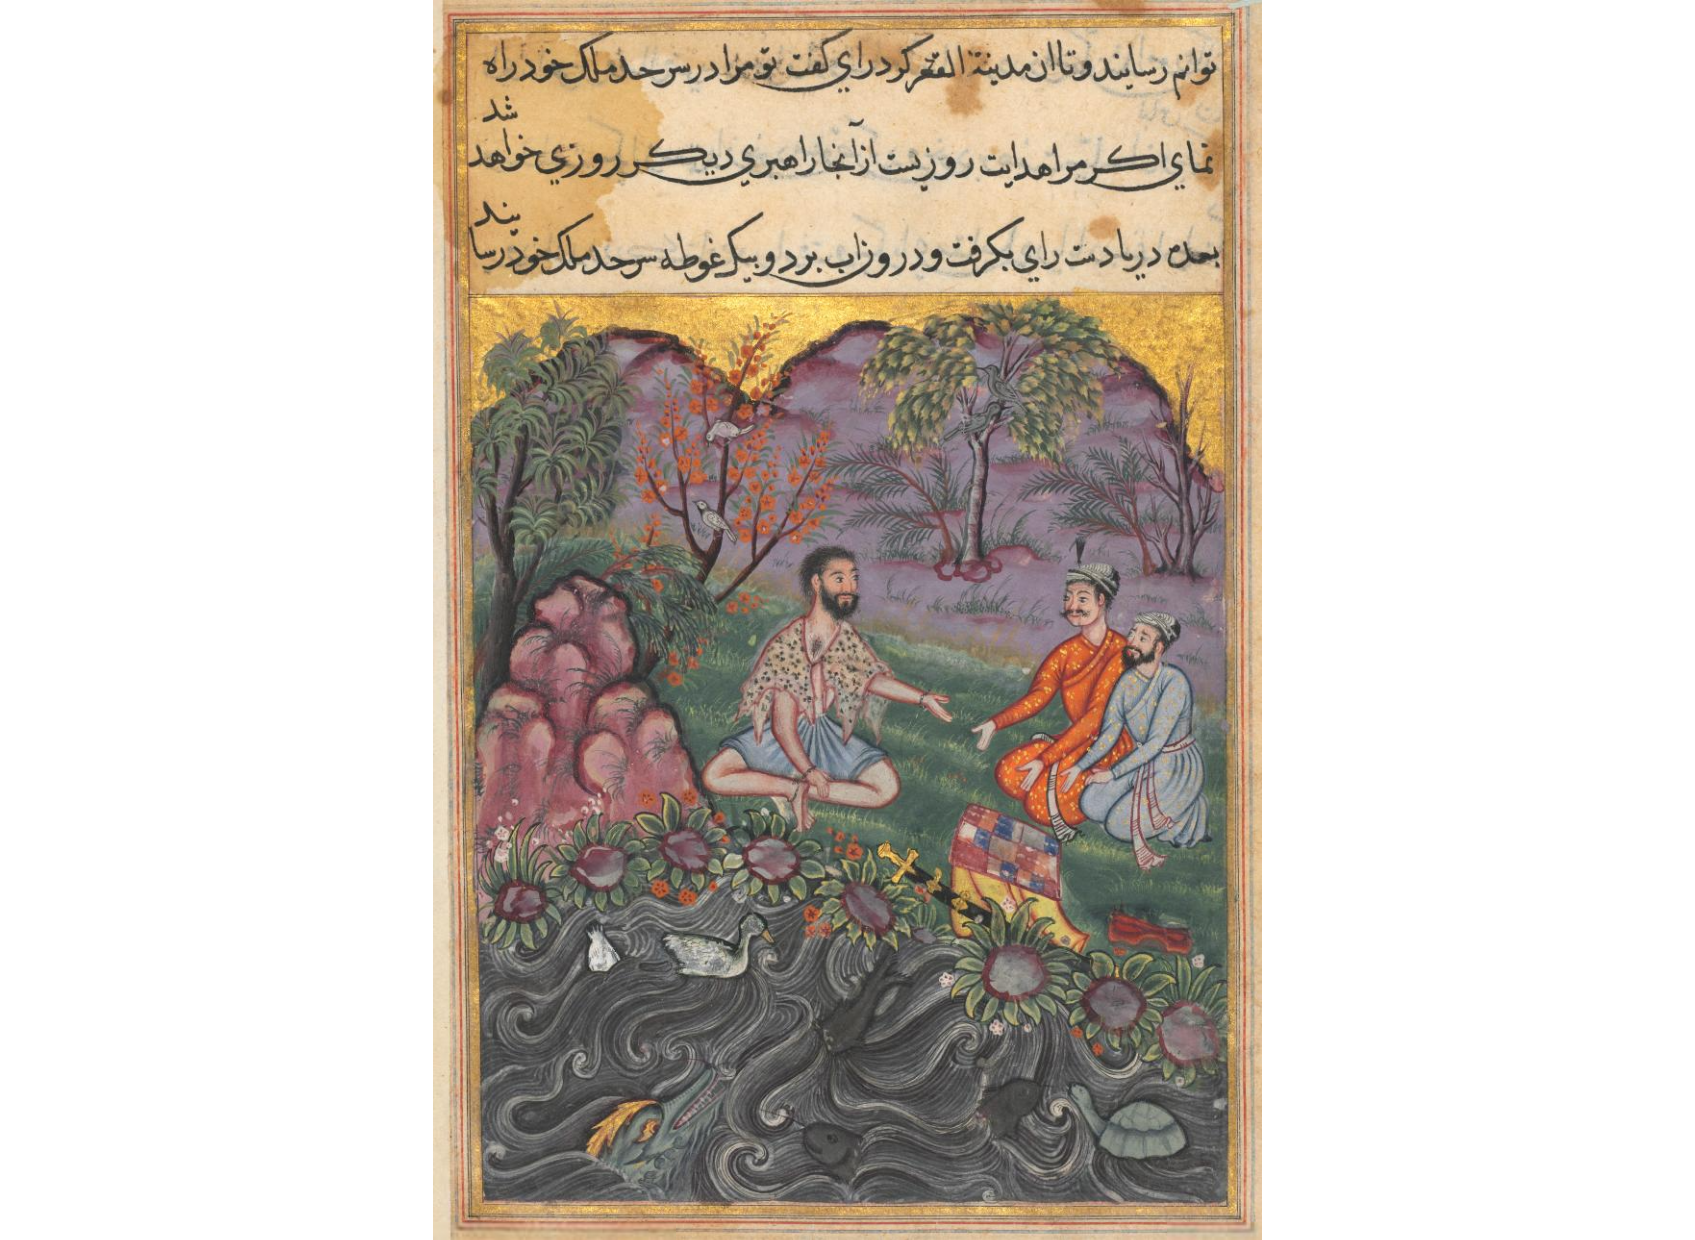 توانم رسانید و تا ان مدینة القمر کرد رای کفت تو مرا در سرحد ملک خود راه
شد
نمای اکر مرا هدایت روزیست از آنجا راهبری دیکر روزی خواهد
بعده دریا دست رای بکرفت و در روز اب برد و بیک غوطه سرحد ملک خود رسا
نید